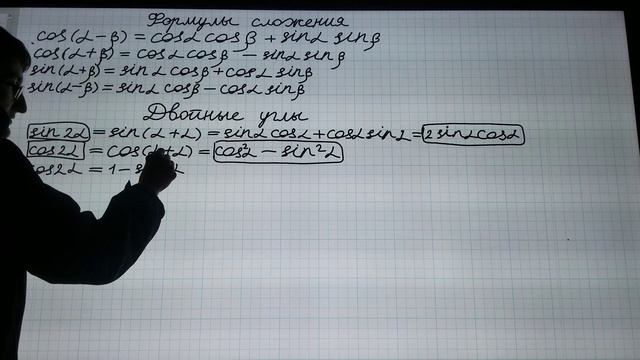 Формулы сложения
cos(α-β) = cosα cosβ + sinα sinβ
cos(α+β) = cosα cosβ - sinα sinβ
sin(α+β) = sinα cosβ + cosα sinβ
sin(α-β) = sinα cosβ - cosα sinβ
Двойные углы
sin2α = sin(α+α) = sinα cosα + cosα sinα = 2 sinα cosα
cos2α = cos(α+α) = cos²α - sin²α
cos2α = 1 -